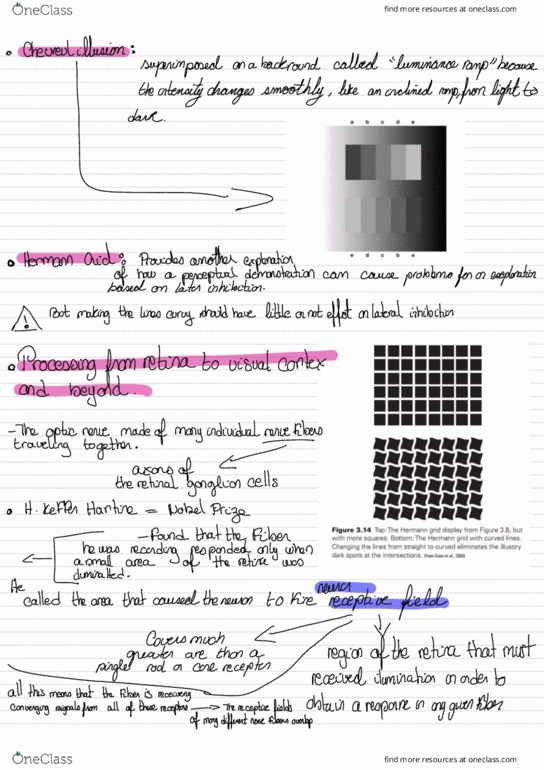 OneClass
find more resources at oneclass.com
Chevreul illusion:
superimposed on a background called "luminance ramp" because
the intensity changes smoothly, like an inclined ramp, from light to
dark.
a b c d e
e d c b a
Hermann Grid: Provides another exploration
of how a perceptual demonstration can cause problems for an
based on lateral inhibition.
But making the lines should have little or not effect on lateral inhibition
Processing from retina to visual cortex
and beyond.
-The optic nerve made of many individual nerve fibers
traveling together.
axons of
the retinal ganglion cells
H. Keffer Hartline = Nobel Prize
-Found that the fiber
he was recording responded only when
a small area of the retina was
illuminated.
He
neuron's
called the area that caused the neuron to fire receptive field
Covers much
greater are than a
single rod or cone receptor
region of the retina that must
received illumination in order to
obtain a response in any given fiber
all this means that the fiber is receiving
converging signals from all of these receptors → The receptive fields
of many different nerve fibers overlap
Figure 3.14 Top: The Hermann grid display from Figure 3.8, but
with more squares. Bottom: The Hermann grid with curved lines.
Changing the lines from straight to curved eliminates the illusory
dark spots at the intersections. (From Geier et al., 2008)
OneClass
find more resources at oneclass.com